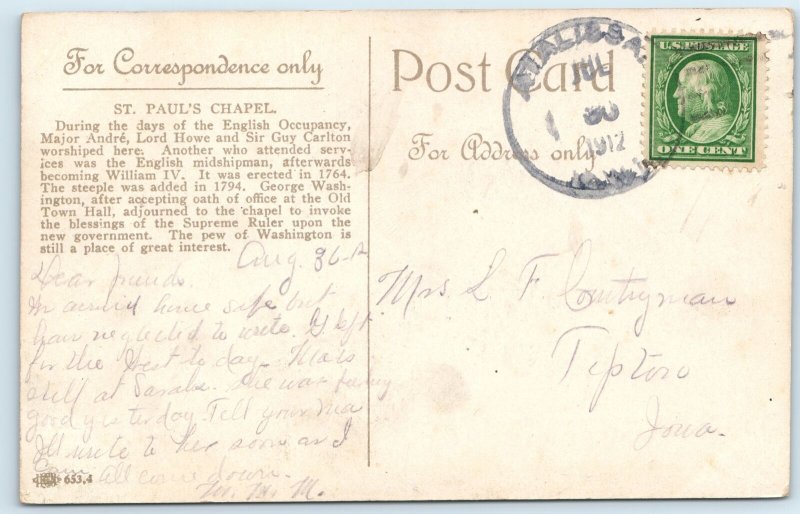 For Correspondence only
ST. PAUL'S CHAPEL.
During the days of the English Occupancy,
Major André, Lord Howe and Sir Guy Carlton
worshiped here. Another who attended serv-
ices was the English midshipman, afterwards
becoming William IV. It was erected in 1764.
The steeple was added in 1794. George Wash-
ington, after accepting oath of office at the Old
Town Hall, adjourned to the chapel to invoke
the blessings of the Supreme Ruler upon the
new government. The pew of Washington is
still a place of great interest.
Aug. 30-12
Dear friends.
arrived home safe but
have neglected to write. left
for the West to day. Ma is
still at Sarahs. She was
good yesterday. Tell your ma
I'll write to her soon and
all come down.
M. M.
653.4
Post Card
For Address only
ATALISSA
30
1912
U.S. POSTAGE
ONE CENT
Mrs. L F Countryman
Tipton
Iowa.